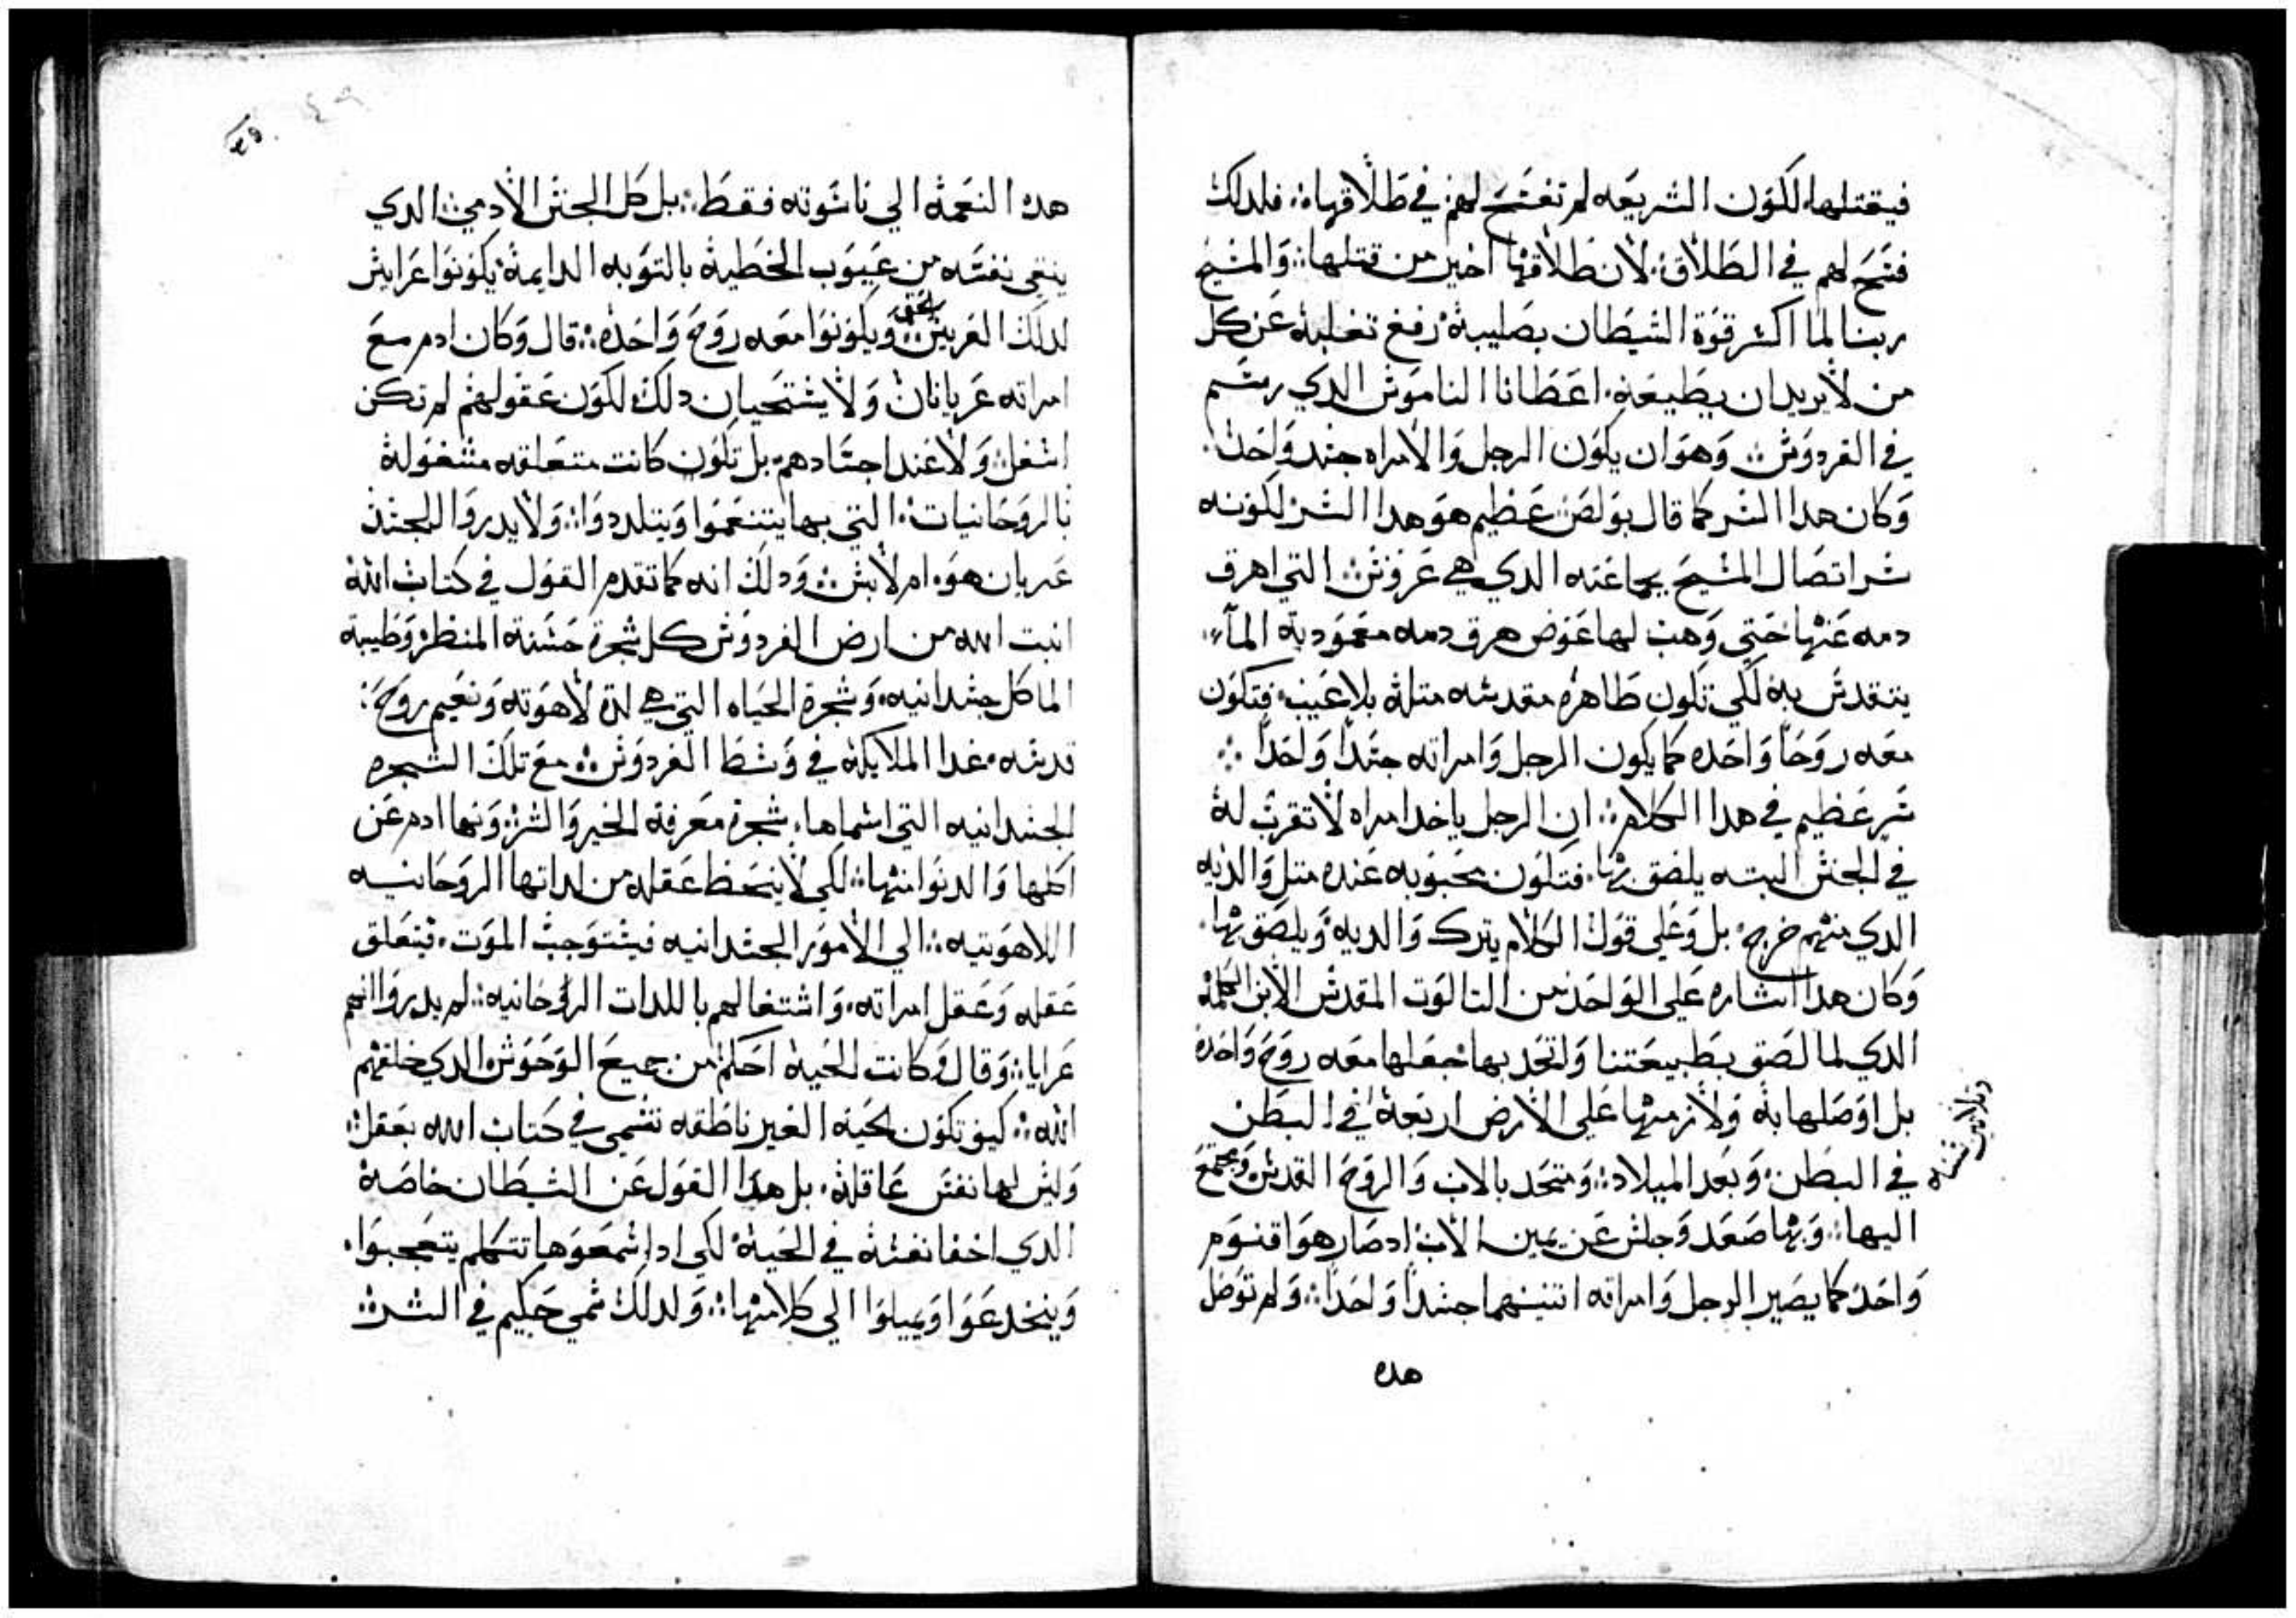 فيقتلها لكون الشريعه لم تفسح لهم في طلاقها فلدلك
فسح لهم في الطلاق لان طلاقها اخير من قتلها والمسيح
ربنا لما اكسر قوة الشيطان بصليبه رفع تغلبه عن كل
من لا يريد ان يطيعه اعطانا الناموس الدي رسم
في الفردوس وهو ان يكون الرجل والامراه جسد واحد
وكان هدا السر كما قال بولص عظيم هو هدا السر لكونه
سر اتصال المسيح بجماعته الدي هي عروس التي اهرق
دمه عنها حتي وهب لها عوض هرق دمه معمودية المآء
يتقدس به لكي تكون طاهره مقدسه متله بلا عيب فتكون
معه روحًا واحده كما يكون الرجل وامراته جسدًا واحدًا
سر عظيم في هدا الكلام ان الرجل ياخد امراه لا تقرب له
في الجنس البته يلصق بها فتكون محبوبه عنده متل والديه
الدي منهم خرج بل وعلي قول الكلام يترك والديه ويلصق بها
وكان هدا اشاره علي الواحد من التالوت المقدس الابن الكلمة
الدي لما لصق بطبيعتنا واتحد بها جعلها معه روح واحده
بل اوصلها به ولازمها علي الارض اربعة في البطن
وتلاتين سنه
في البطن وبعد الميلاد ومتحد بالاب والروح القدس ويجتمع
اليها وبها صعد وجلس عن يمين الاب اد صار هو اقنوم
واحد كما يصير الرجل وامراته اتنينهما جسدًا واحدًا ولم توصل
هده
هده النعمة الي ناسوته فقط بل كل الجنس الادمي الدي
ينقي نفسه من عيوب الخطية بالتوبه الدايمة يكونوا عرايس
لدلك العريس بحق ويكونوا معه روح واحده قال وكان ادم مع
امراته عريانان ولا يستحيان دلك لكون عقولهم لم تكن
اسفل ولا عند اجسادهم بل تكون كانت متعلقه مشغولة
بالروحانيات التي بها يتنعموا ويتلددوا ولا يدروا الجسد
عريان هو ام لابس ودلك انه كما تقدم القول في كتاب الله
انبت الله من ارض الفردوس كل شجرة حسنة المنظر وطيبة
الماكل جسدانيه وشجرة الحياه التي هي لدة لاهوته ونعيم روح
قدسه غدا الملايكة في وسط الفردوس مع تلك الشجره
الجسدانيه التي اسماها شجرة معرفة الخير والشر ونها ادم عن
اكلها والدنوا منها لكي لا ينحط عقله من لداتها الروحانيه
اللاهوتيه الي الامور الجسدانيه فيستوجب الموت فتعلق
عقله وعقل امراته واشتغالهم باللدات الروحانيه لم يدروا انهم
عرايا وقال وكانت الحية احكم من جميع الوحوش الدي خلقهم
الله كيف تكون الحية الغير ناطقه تسمي في كتاب الله بعقل
وليس لها نفس عاقلة بل هدا القول عن الشيطان خاصة
الدي اخفا نفسه في الحية لكي ادا سمعوها تتكلم يتعجبوا
وينخدعوا ويميلوا الي كلامها ولدلك سمي حكيم في الشر